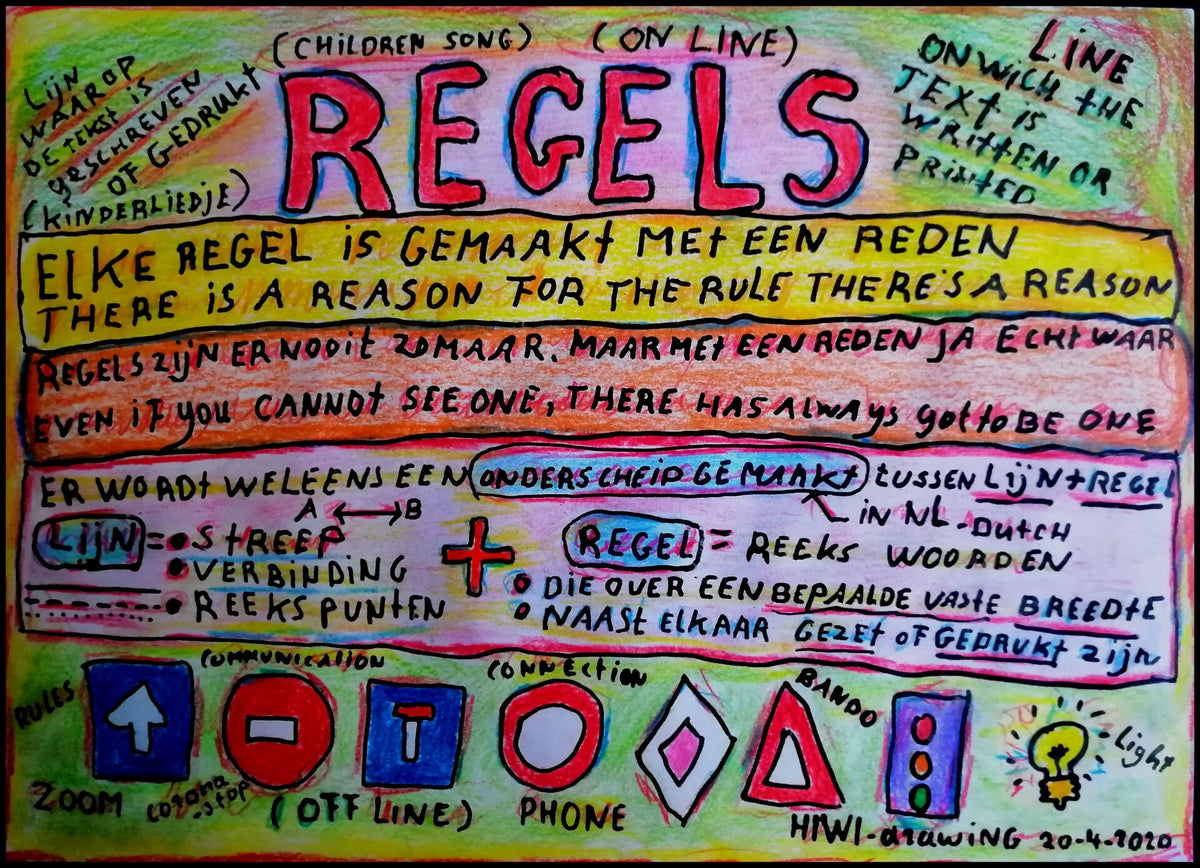 (CHILDREN SONG) (ON LINE)
REGELS
LIJN
WAAROP
DE TEKST IS
GESCHREVEN
OF GEDRUKT
(KINDERLIEDJE)
LINE
ON WICH THE
TEXT IS
WRITTEN OR
PRINTED
ELKE REGEL IS GEMAAKT MET EEN REDEN
THERE IS A REASON FOR THE RULE THERE'S A REASON
REGELS ZIJN ER NOOIT ZOMAAR. MAAR MET EEN REDEN JA ECHT WAAR
EVEN IF YOU CANNOT SEE ONE, THERE HAS ALWAYS GOT TO BE ONE
ER WORDT WELEENS EEN ONDERSCHEID GEMAAKT TUSSEN LIJN + REGEL
IN NL - DUTCH
A B
LIJN = • STREEP
• VERBINDING
• REEKS PUNTEN
+
REGEL = REEKS WOORDEN
• DIE OVER EEN BEPAALDE VASTE BREEDTE
• NAAST ELKAAR GEZET OF GEDRUKT ZIJN
RULES COMMUNICATION CONNECTION BANDO
Light
ZOOM corona stop (OFF LINE) PHONE
HIWI-drawING 20-4-2020